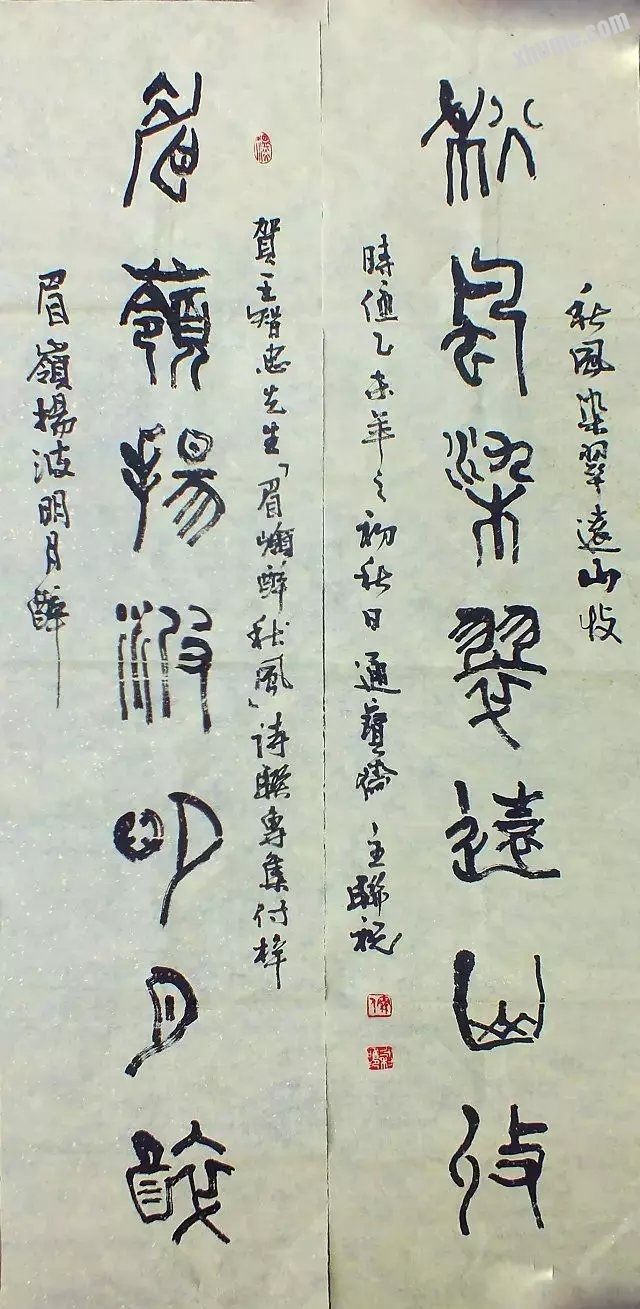 秋風染翠遠山
秋風染翠遠山
時值乙未年之初秋日通寶齋主聯祝
賀王智忠先生「眉嶺醉秋風」詩聯專集付梓
眉嶺揚波明月醉
眉嶺揚波明月醉